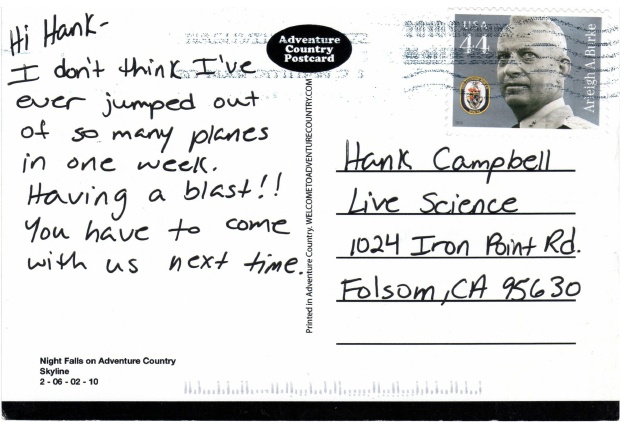 Hi Hank-
I don't think I've
ever jumped out
of so many planes
in one week.
Having a blast!!
You have to come
with us next time.
Adventure
Country
Postcard
USA
44
Arleigh A. Burke
Printed in Adventure Country. WELCOMETOADVENTURECOUNTRY.COM
Hank Campbell
Live Science
1024 Iron Point Rd.
Folsom, CA 95630
Night Falls on Adventure Country
Skyline
2 - 06 - 02 - 10